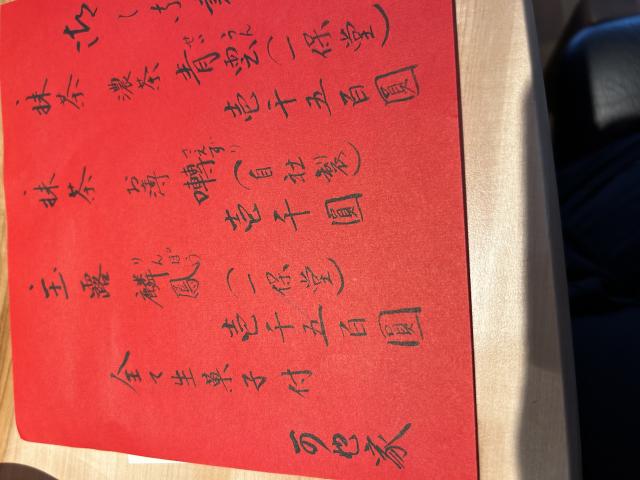 抹茶 濃茶 青雲(一保堂) 壱千五百圓
せいうん
抹茶 お薄 囀(自社製) 壱千圓
さえずり
玉露 麟鳳(一保堂) 壱千五百圓
りんぽう
全て生菓子付